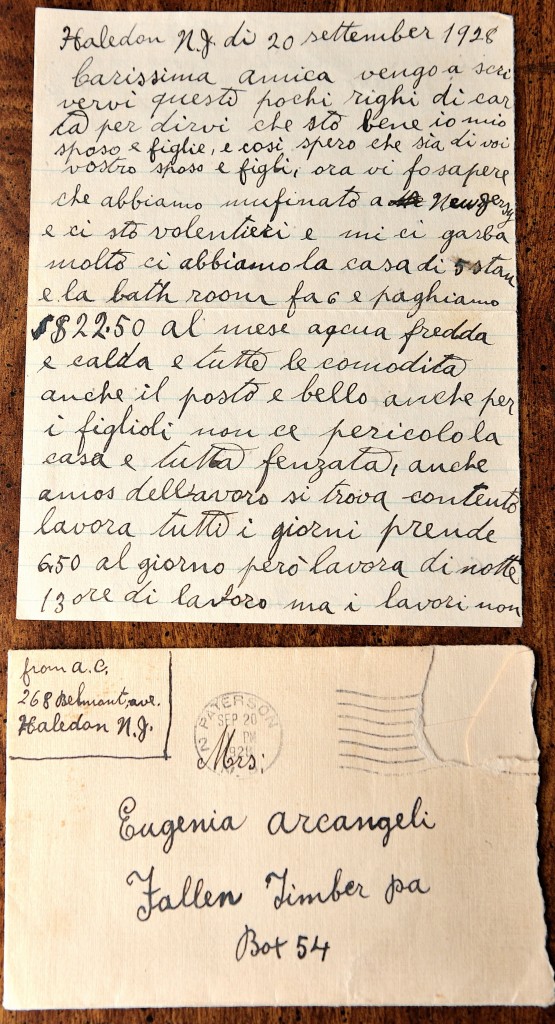 Haledon N.J. di 20 settembre 1928
Carissima amica vengo a scri
vervi questi pochi righi di car
ta per dirvi che sto bene io mio
sposo e figlie, e cosi spero che sia di voi
vostro sposo e figli, ora vi fo sapere
che abbiamo mufinato a New Jersy
e ci sto volentieri e mi ci garba
molto ci abbiamo la casa di 5 stan
e la bath room fa 6 e paghiamo
$22.50 al mese acqua fredda
e calda e tutte le comodita
anche il posto e bello anche per
i figlioli non ce pericolo la
casa e tutta fenzata, anche
amos dell avoro si trova contento
lavora tutti i giorni prende
6.50 al giorno però lavora di notte
13 ore di lavoro ma i lavori non
from a.C.
268 Belmont, ave.
Haledon N.J.
PATERSON
SEP 20
2 PM
1928
N.J.
Mrs;
Eugenia Arcangeli
Fallen Timber pa
Box 54